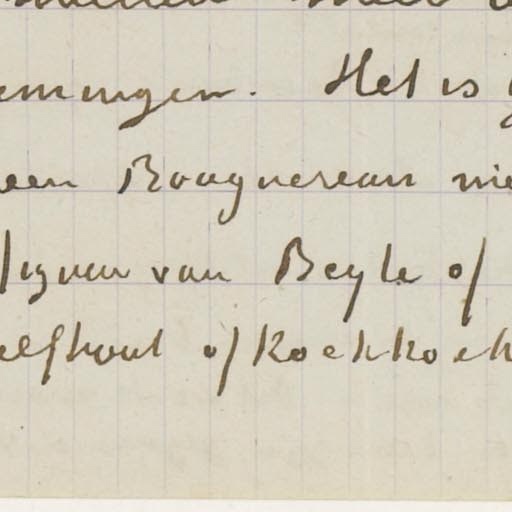 emingen. Het is
een Bouguereau nie
van Beyle of
elfhout of Koekkoek